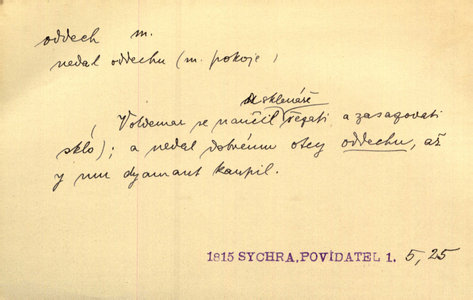 oddech m.
nedal oddechu (m. pokoje)
od sklenáře
(Voldemar se naučil řezati a zasazovati
sklo); a nedal dobrému otcy oddechu, až
y mu dyamant kaupil.
1815 SYCHRA, POVÍDATEL 1. 5, 25